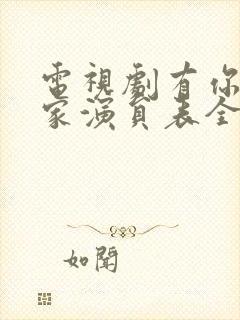 電視劇有你
家演員表全
如聞